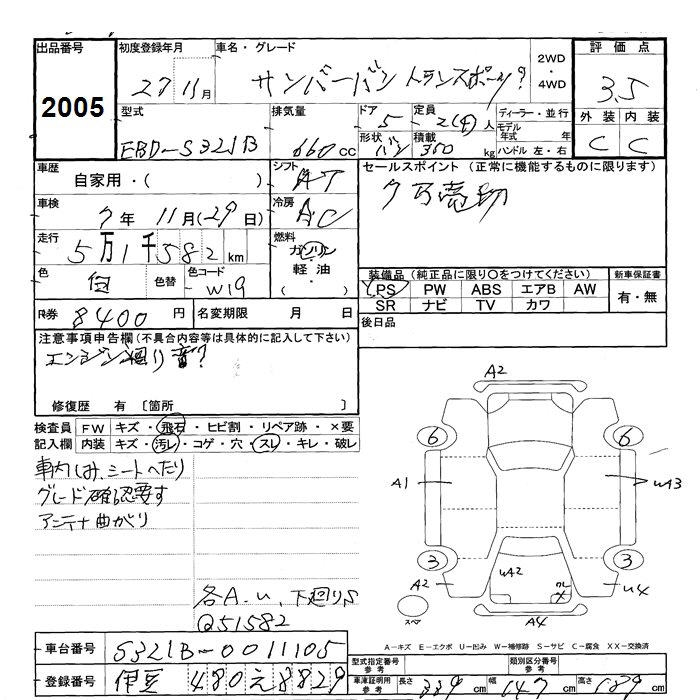 出品番号 初度登録年月 車名・グレード 2WD・4WD 評価点
2005 27 11月 サンバーバン トランスポータ? 3.5
型式 排気量 ドア 定員 ディーラー・並行 外装 内装
EBD-S321B 660cc 5 2(4)人 モデル年式 年 C C
形状 バン 積載 350kg ハンドル 左・右
車歴 シフト セールスポイント(正常に機能するものに限ります)
自家用・( ) AT
車検 冷房
7年 11月(29日) AC
走行 燃料
5万1千582km ガソリン
色 色替 色コード 軽油
白 W19 ・( )
装備品(純正品に限り○をつけてください) 新車保証書
PS PW ABS エアB AW 有・無
SR ナビ TV カワ
R券 8400円 名変期限 月 日 後日品
注意事項申告欄(不具合内容等は具体的に記入して下さい)
エンジン 音?
修復歴 有 〔箇所 〕
検査員 FW キズ・飛石・ヒビ割・リペア跡・×要
記入欄 内装 キズ・汚レ・コゲ・穴・スレ・キレ・破レ
車内しみ、シートへたり
グレード確認要す
アンテナ曲がり
各A-u、下廻りS
Q51582
A2
6 6
A1 uA3
3 3
A2 uA2 u4
スペア A4
A-キズ E-エクボ U-凹み W-補修跡 S-サビ C-腐食 XX-交換済
車台番号 S321B-0011105 型式指定番号 参考 類別区分番号 参考
登録番号 伊豆 480え8829 車庫証明用 参考 長さ 339cm 幅 147cm 高さ 189cm